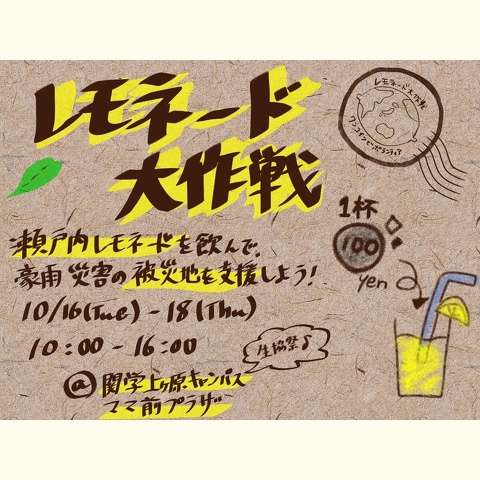 レモネード
大作戦
レモネード大作戦
ワンコインでボランティア
1杯
100
yen
瀬戸内レモネードを飲んで、
豪雨災害の被災地を支援しよう！
10/16(Tue) - 18(Thu)
10:00 - 16:00
生協祭♪
@関学上ヶ原キャンパス
ママ前プラザ